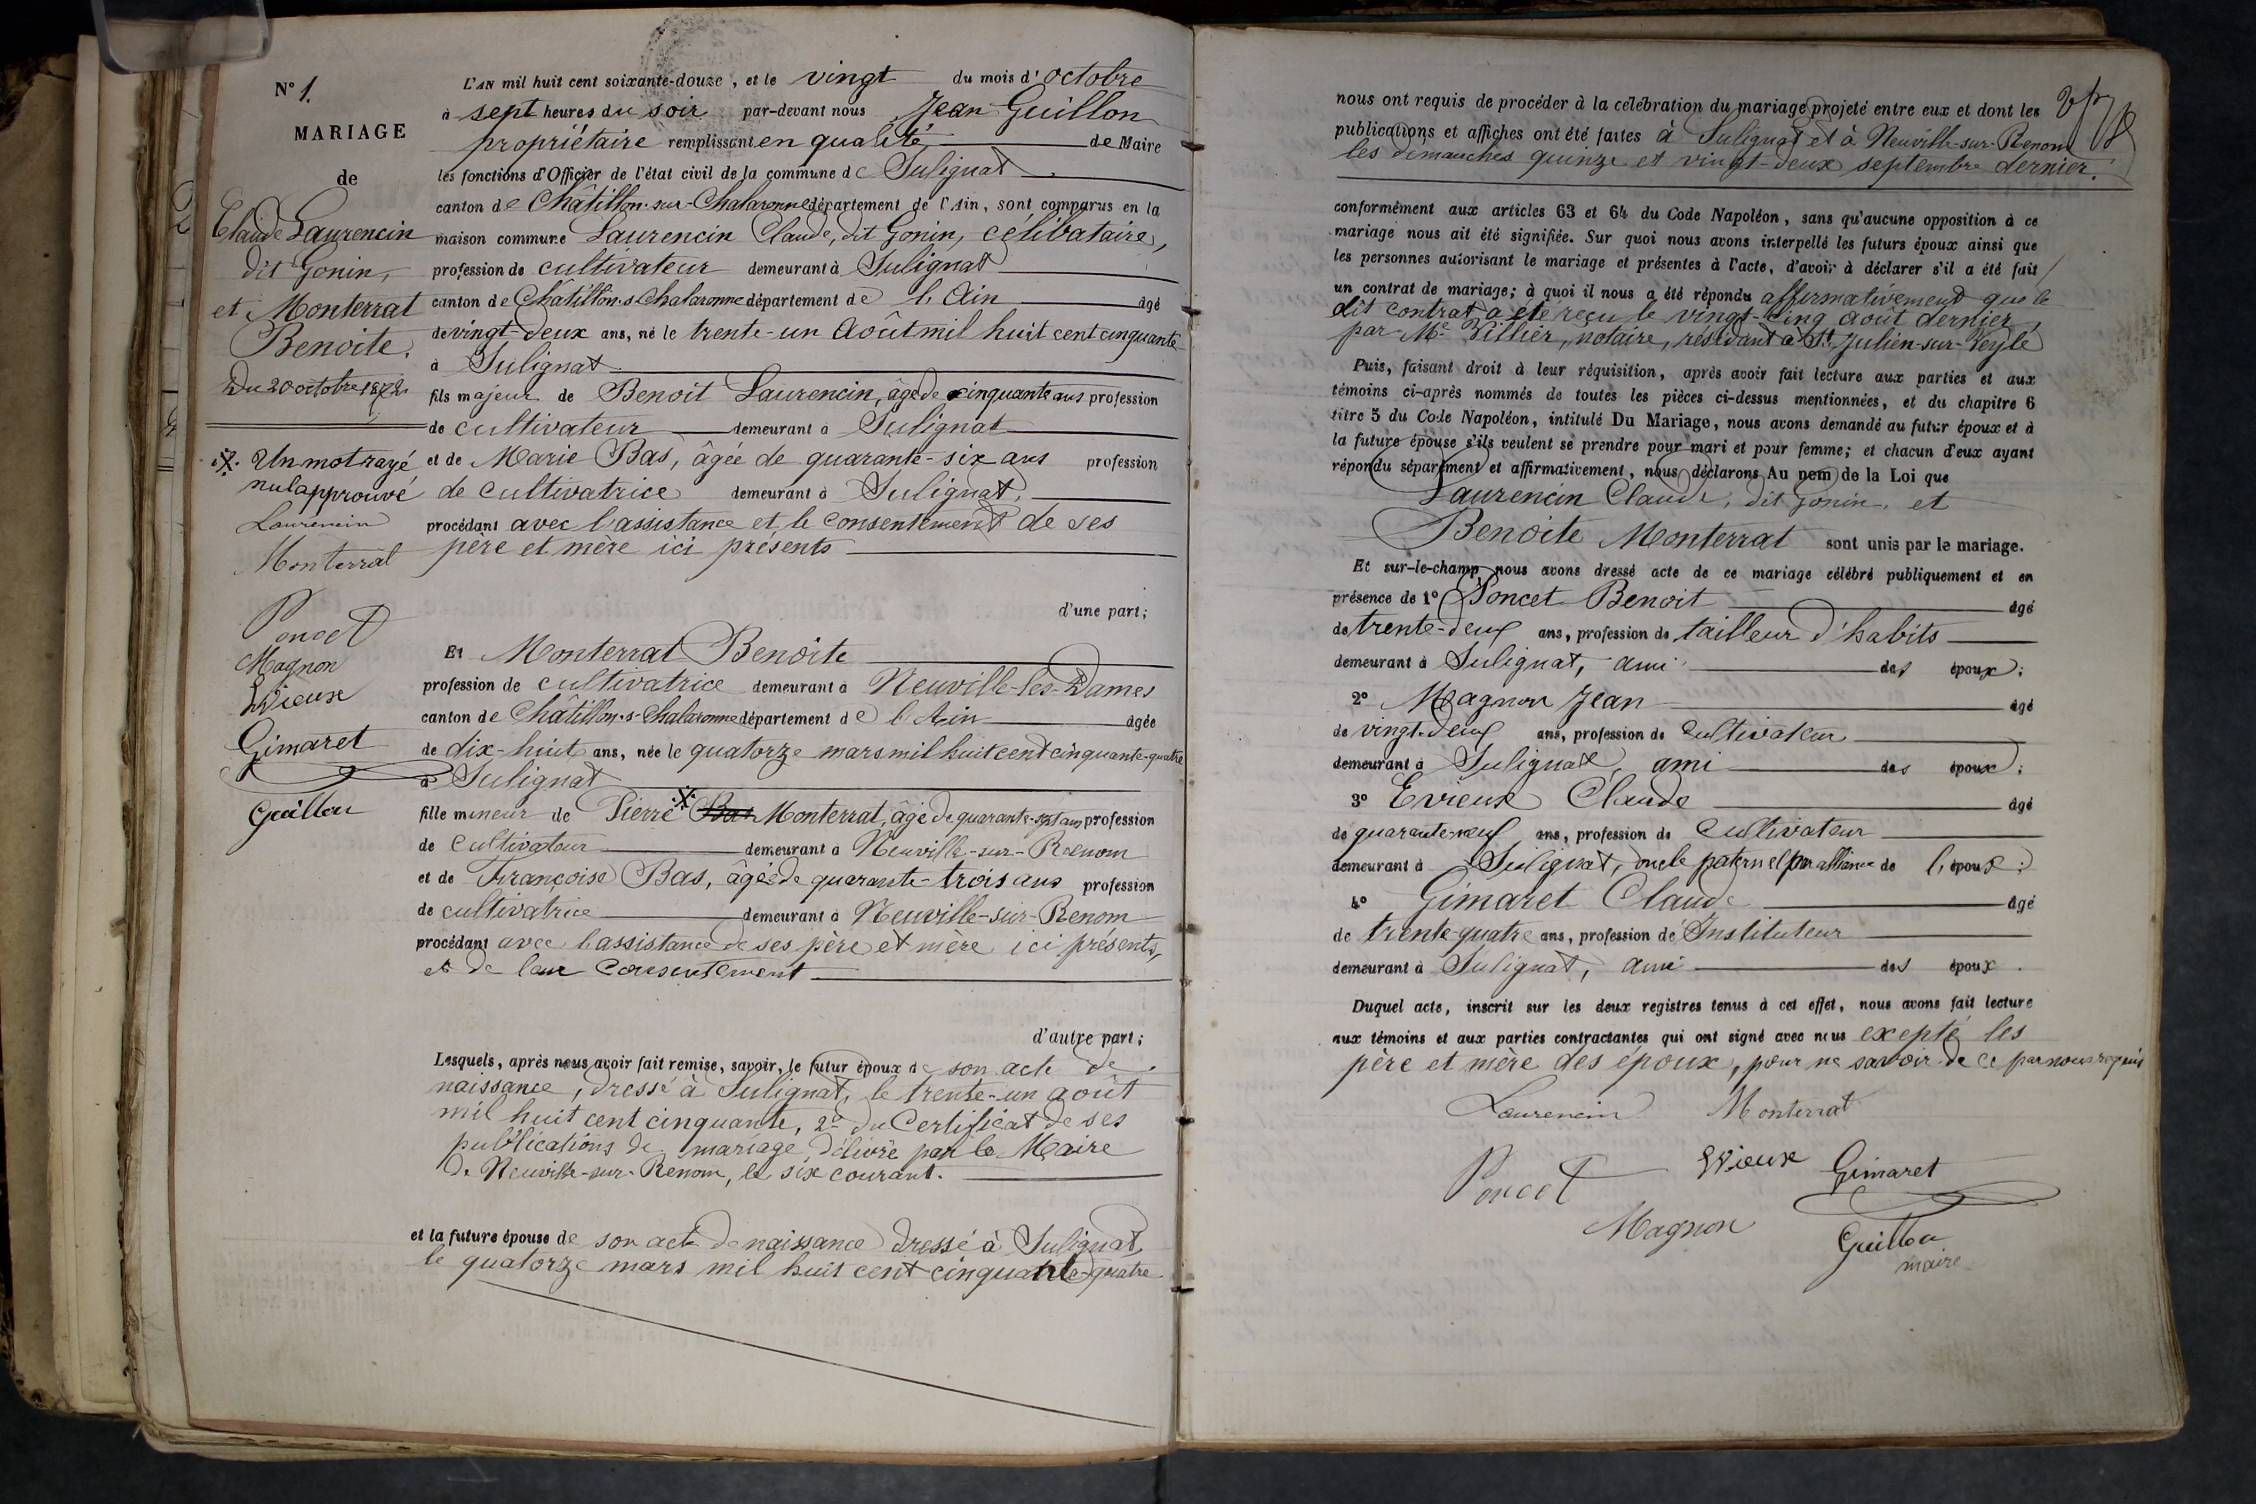 N° 1.
MARIAGE
de
Claude Laurencin
dit Gonin,
et Monterrat
Benoite.
Du 20 octobre 1872.
Un mot rayé
nul approuvé
Laurencin
Monterrat
Poncet
Magnon
Evieux
Gimaret
Guillon
L'AN mil huit cent soixante-douze, et le vingt du mois d'octobre
à sept heures du soir par-devant nous Jean Guillon
propriétaire remplissant en qualité de Maire
les fonctions d'Officier de l'état civil de la commune de Sulignat
canton de Châtillon-sur-Chalaronne département de l'Ain, sont comparus en la
maison commune Laurencin Claude, dit Gonin, célibataire,
profession de cultivateur demeurant à Sulignat
canton de Châtillon-s-Chalaronne département de l'Ain âgé
de vingt-deux ans, né le trente-un Août mil huit cent cinquante
à Sulignat
fils majeur de Benoit Laurencin, âgé de cinquante ans profession
de cultivateur demeurant à Sulignat
et de Marie Bas, âgée de quarante-six ans profession
de cultivatrice demeurant à Sulignat,
procédant avec l'assistance et le consentement de ses
père et mère ici présents
d'une part;
Et Monterrat Benoite
profession de cultivatrice demeurant à Neuville-les-Dames
canton de Châtillon-s-Chalaronne département de l'Ain âgée
de dix-huit ans, née le quatorze mars mil huit cent cinquante-quatre
à Sulignat
fille mineur de Pierre Bas Monterrat, âgé de quarante-sept ans profession
de cultivateur demeurant à Neuville-sur-Renom
et de Françoise Bas, âgée de quarante-trois ans profession
de cultivatrice demeurant à Neuville-sur-Renom
procédant avec l'assistance de ses père et mère ici présents,
et de leur consentement
d'autre part;
Lesquels, après nous avoir fait remise, savoir, le futur époux de son acte de
naissance, dressé à Sulignat, le trente-un août
mil huit cent cinquante, 2° du Certificat de ses
publications de mariage, délivré par le Maire
de Neuville-sur-Renom, le six courant.
et la future épouse de son acte de naissance dressé à Sulignat,
le quatorze mars mil huit cent cinquante-quatre
nous ont requis de procéder à la célébration du mariage projeté entre eux et dont les
publications et affiches ont été faites à Sulignat et à Neuville-sur-Renom
les dimanches quinze et vingt-deux septembre dernier.
conformément aux articles 63 et 64 du Code Napoléon, sans qu'aucune opposition à ce
mariage nous ait été signifiée. Sur quoi nous avons interpellé les futurs époux ainsi que
les personnes autorisant le mariage et présentes à l'acte, d'avoir à déclarer s'il a été fait
un contrat de mariage; à quoi il nous a été répondu affirmativement que le
dit contrat a été reçu le vingt-cinq août dernier,
par Me Villier, notaire, résidant à St Julien-sur-Veyle
Puis, faisant droit à leur réquisition, après avoir fait lecture aux parties et aux
témoins ci-après nommés de toutes les pièces ci-dessus mentionnées, et du chapitre 6
titre 5 du Code Napoléon, intitulé Du Mariage, nous avons demandé au futur époux et à
la future épouse s'ils veulent se prendre pour mari et pour femme; et chacun d'eux ayant
répondu séparément et affirmativement, nous déclarons Au nom de la Loi que
Laurencin Claude, dit Gonin, et
Benoite Monterrat sont unis par le mariage.
Et sur-le-champ nous avons dressé acte de ce mariage célébré publiquement et en
présence de 1° Poncet Benoit âgé
de trente-deux ans, profession de tailleur d'habits
demeurant à Sulignat, ami des époux;
2° Magnon Jean âgé
de vingt-deux ans, profession de cultivateur
demeurant à Sulignat, ami des époux;
3° Evieux Claude âgé
de quarante-neuf ans, profession de cultivateur
demeurant à Sulignat, oncle paternel par alliance de l'époux;
4° Gimaret Claude âgé
de trente-quatre ans, profession de Instituteur
demeurant à Sulignat, ami des époux.
Duquel acte, inscrit sur les deux registres tenus à cet effet, nous avons fait lecture
aux témoins et aux parties contractantes qui ont signé avec nous excepté les
père et mère des époux, pour ne savoir de ce par nous requis
Laurencin Monterrat
Poncet Evieux Gimaret
Magnon Guillon
maire